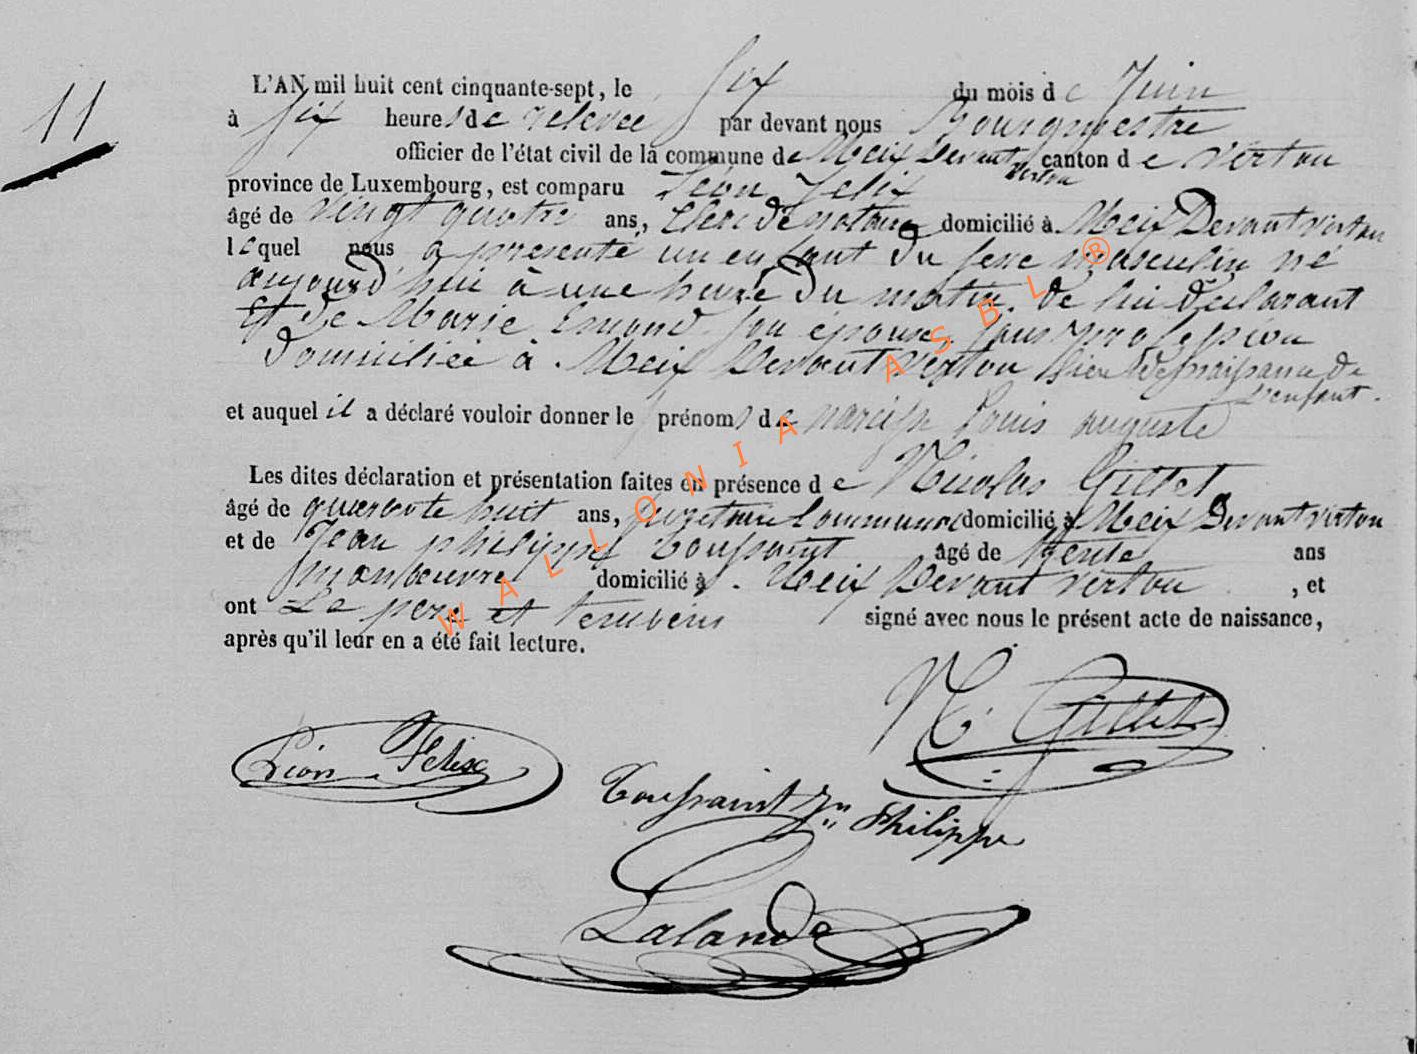 11
L'AN mil huit cent cinquante-sept, le six du mois de Juin
à six heures de relevée par devant nous Bourgmestre
officier de l'état civil de la commune de Meix Devant Virton canton de Virton
province de Luxembourg, est comparu Léon Felix
âgé de vingt quatre ans, Clerc de notaire domicilié à Meix Devant Virton
lequel nous a présenté un enfant du sexe masculin né
aujourd'hui à une heure du matin, de lui déclarant
Et de Marie Emond son épouse, sans profession
Domiciliée à Meix Devant Virton lieu de naissance de
l'enfant.
et auquel il a déclaré vouloir donner les prénoms de narcisse Louis auguste
Les dites déclaration et présentation faites en présence de Nicolas Gillet
âgé de quarante huit ans, secrétaire Communal domicilié à Meix Devant Virton
et de Jean philippe Toussaint âgé de trente ans
manoeuvre domicilié à Meix Devant Virton, et
ont Le père et temoins signé avec nous le présent acte de naissance,
après qu'il leur en a été fait lecture.
N. Gillet
Léon Felix
Toussaint Jn Philippe
Lalande
WALLONIA ASBL ®